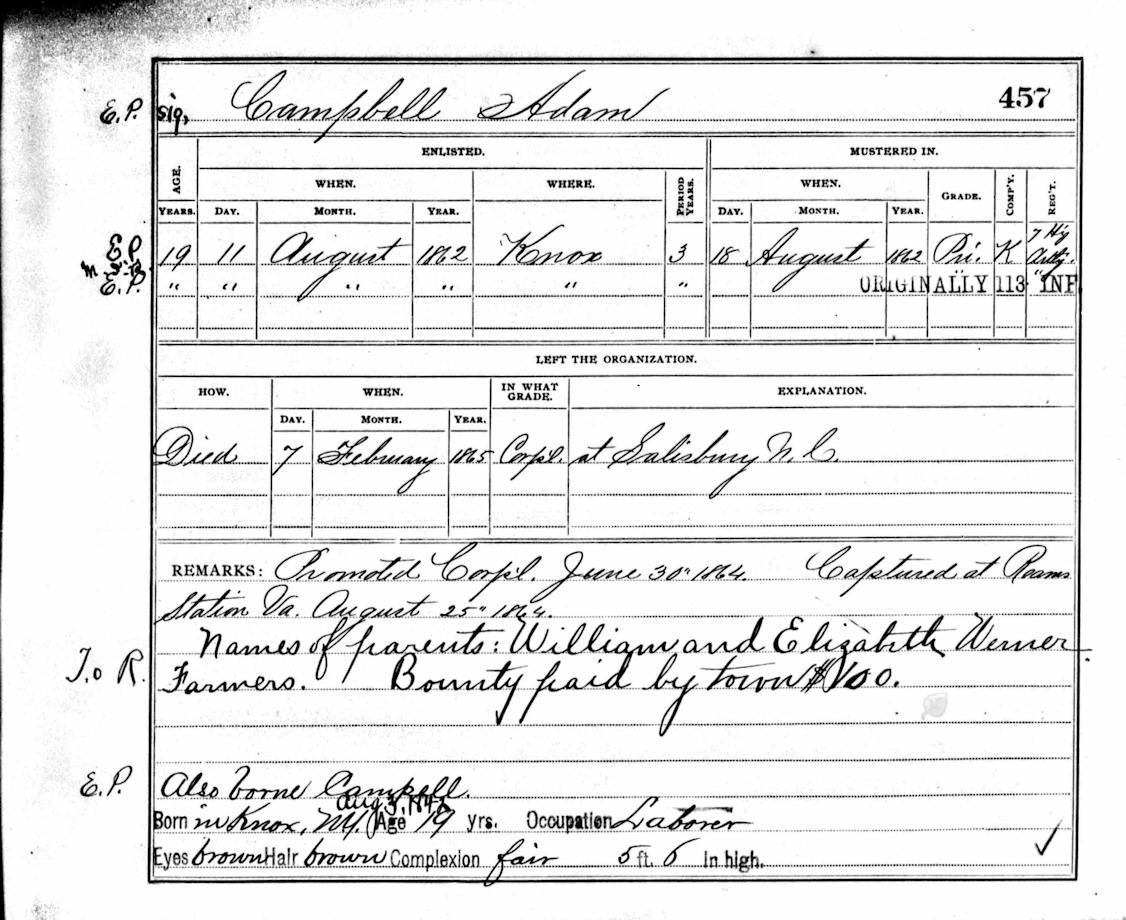 E.P. sig. Campbell Adam 457
ENLISTED. MUSTERED IN.
AGE. WHEN. WHERE. PERIOD YEARS. WHEN. GRADE. COMP'Y. REG'T.
YEARS. DAY. MONTH. YEAR. DAY. MONTH. YEAR.
E.P. 19 11 August 1862 Knox 3 18 August 1862 Pri. K 7 Hy Arty.
E.P. " " " " " " ORIGINALLY 113 " INF
LEFT THE ORGANIZATION.
HOW. WHEN. IN WHAT GRADE. EXPLANATION.
DAY. MONTH. YEAR.
Died 7 February 1865 Corpl. at Salisbury N.C.
REMARKS: Promoted Corpl. June 30" 1864. Captured at Reams
Station Va. August 25" 1864.
Names of parents: William and Elizabeth Werner
T.o R. Farmers. Bounty paid by town $100.
E.P. Also borne Campell.
Aug 3, 1842
Born in Knox, NY. Age 19 yrs. Occupation Laborer
Eyes brown Hair brown Complexion fair 5 ft. 6 In high.